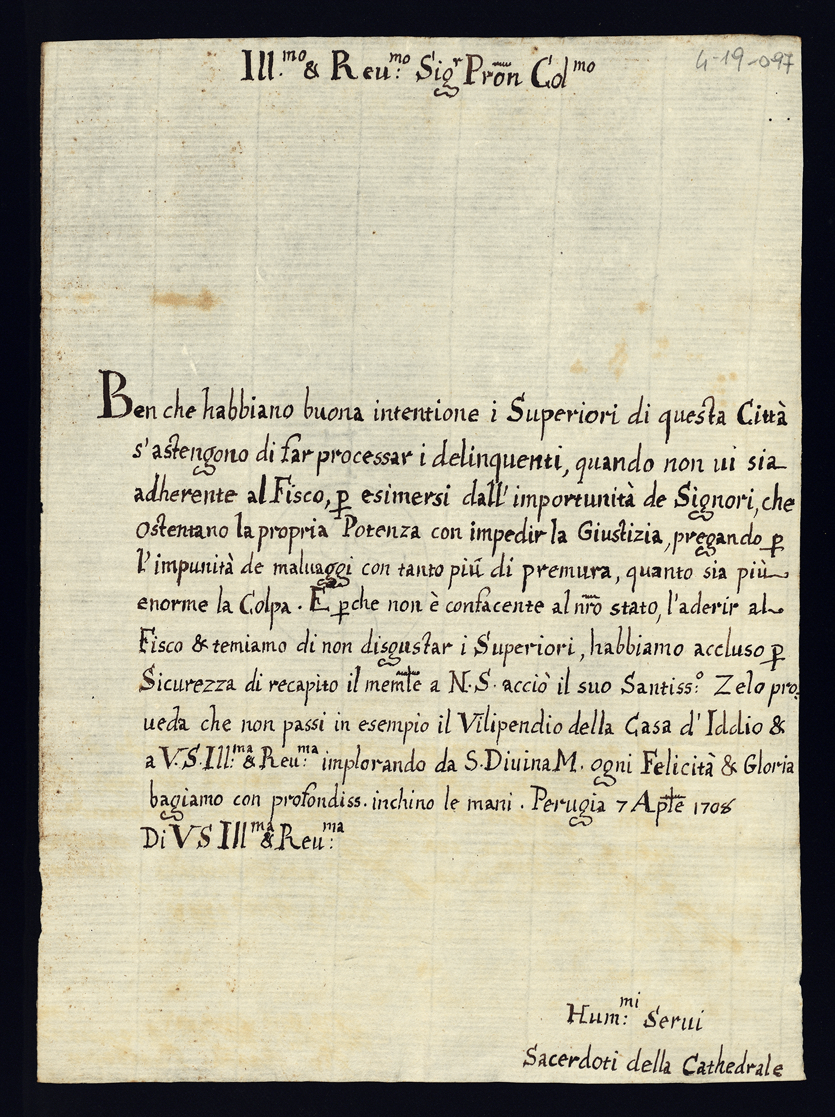 Ill.mo & Reu.mo Sigr Prõn Colmo
4-19-097
Ben che habbiano buona intentione i Superiori di questa Città
s'astengono di far processar i delinquenti, quando non ui sia
adherente al Fisco, ꝑ esimersi dall' importunità de Signori, che
ostentano la propria Potenza con impedir la Giustizia, pregando ꝑ
l' impunità de maluaggi con tanto più di premura, quanto sia più
enorme la Colpa. E ꝑche non è confacente al nr̃o stato, l'aderir al
Fisco & temiamo di non disgustar i Superiori, habbiamo accluso ꝑ
Sicurezza di recapito il memle a N.S. acciò il suo Santiss.o Zelo pro,
ueda che non passi in esempio il Vilipendio della Casa d' Iddio &
a V.S. Ill.ma & Reu.ma implorando da S. Diuina M. ogni Felicità & Gloria
bagiamo con profondiss. inchino le mani. Perugia 7 Aplẽ 1708
Di V S Illma & Reu.ma
Hum.mi Serui
Sacerdoti della Cathedrale